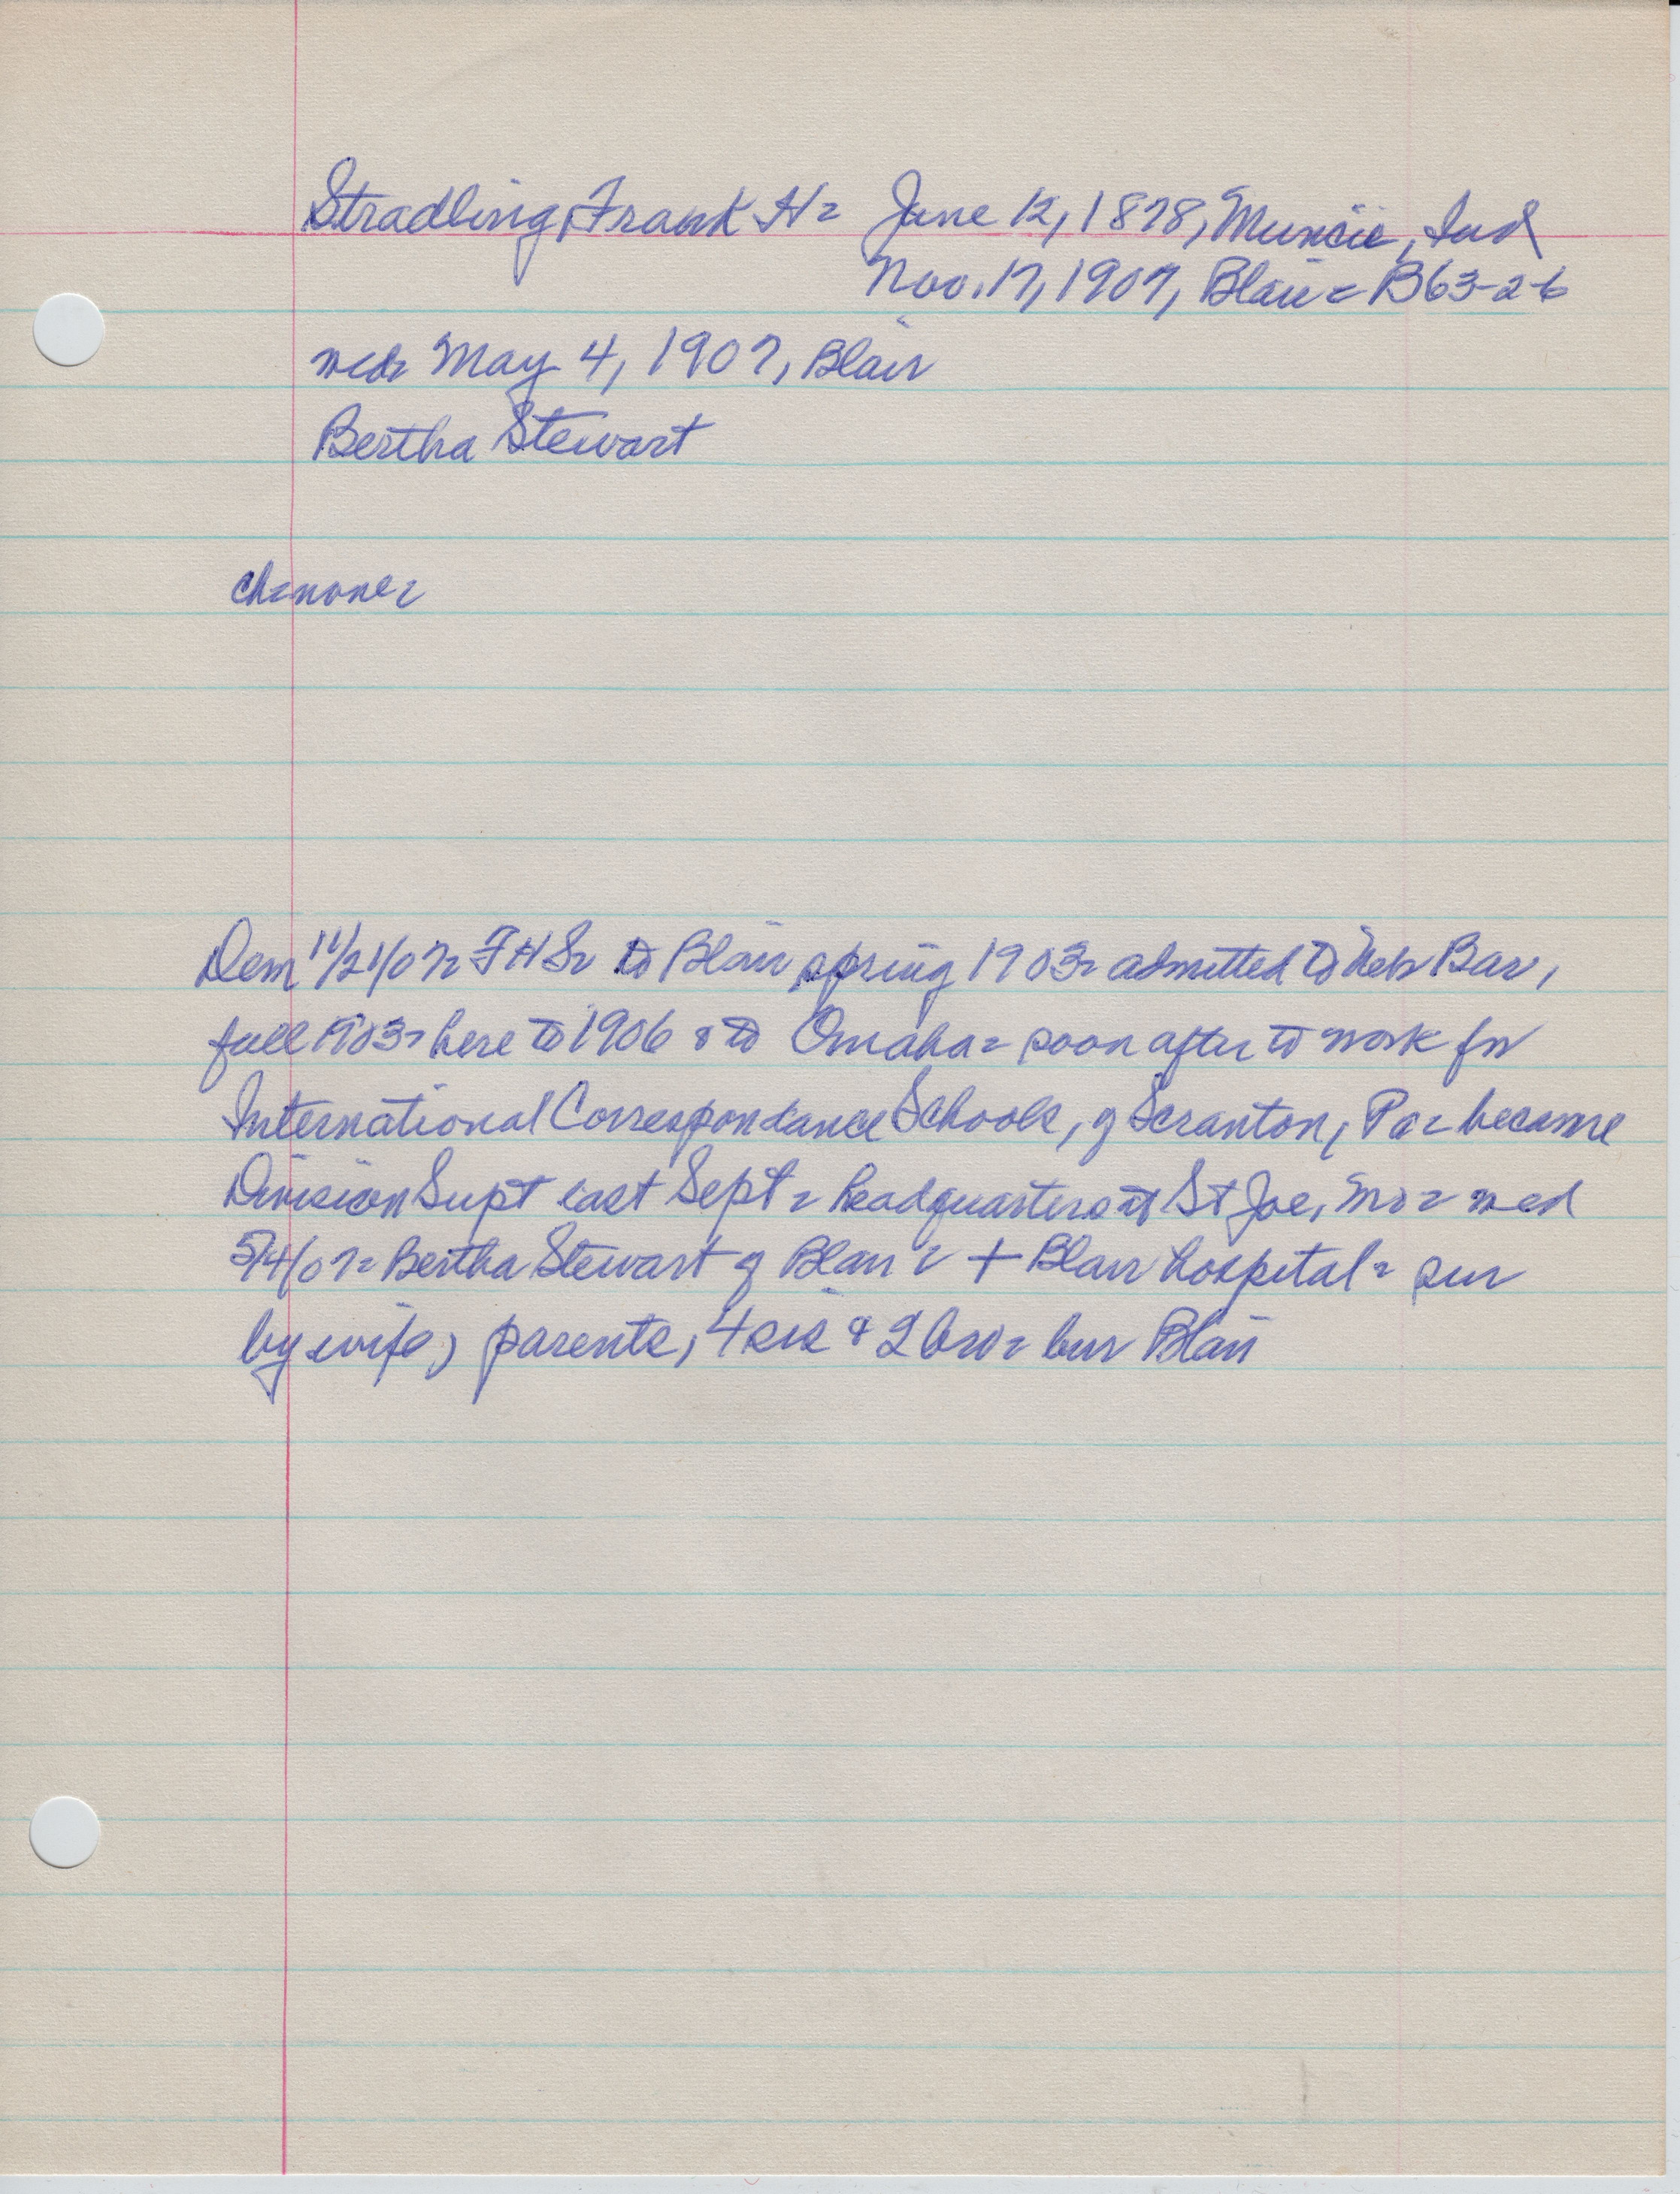 Stradling, Frank H= June 12, 1878, Muncie, Ind
Nov. 17, 1907, Blair= B63-2-6
wed= May 4, 1907, Blair
Bertha Stewart
ch=none=
Dem 11/21/07= FHS= to Blair spring 1903= admitted to Neb Bar,
fall 1903= here to 1906 & to Omaha= soon after to work for
International Correspondance Schools, of Scranton, Pa= became
Division Supt last Sept= headquarters at St Joe, Mo= wed
5/4/07= Bertha Stewart of Blair= + Blair hospital= sur
by wife, parents, 4 sis & 2 bro= bur Blair